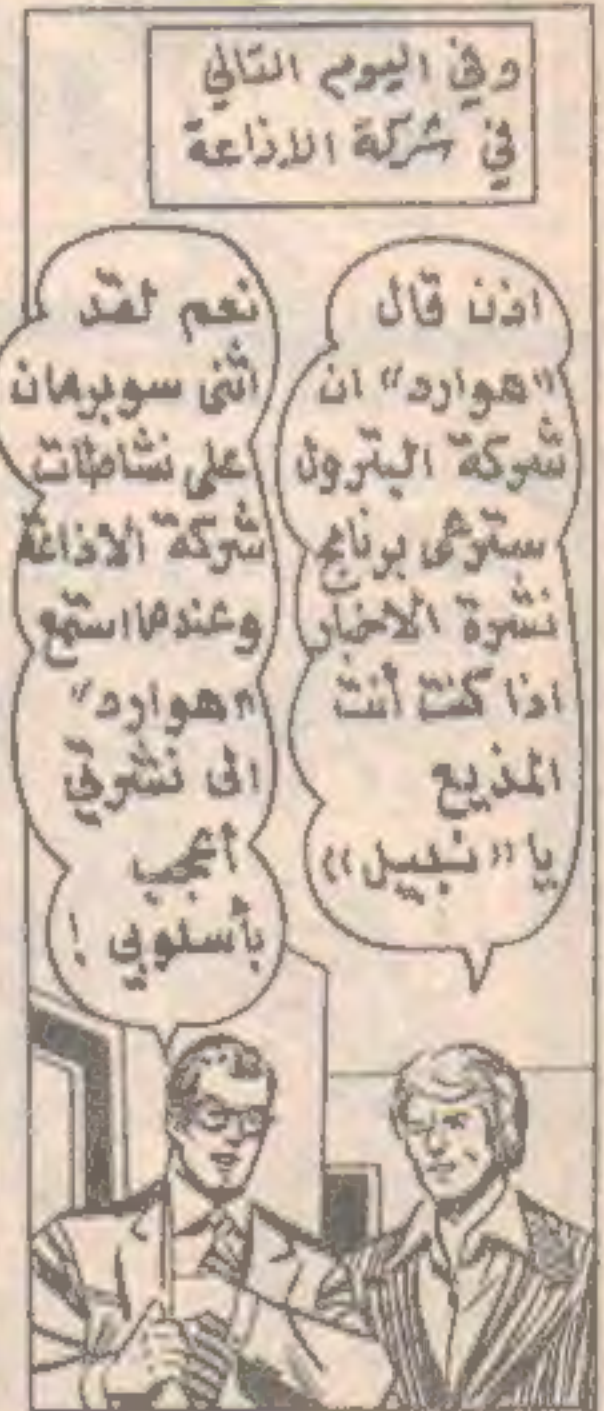 وفي اليوم التالي
في شركة الاذاعة
اذن قال
«هوارد» ان
شركة البترول
سترعى برنامج
نشرة الاخبار
اذا كنت أنت
المذيع
يا «نبيل»
نعم لقد
اثنى سوبرمان
على نشاطات
شركة الاذاعة
وعندما استمع
«هوارد»
الى نشرتي
أعجب
بأسلوبي !